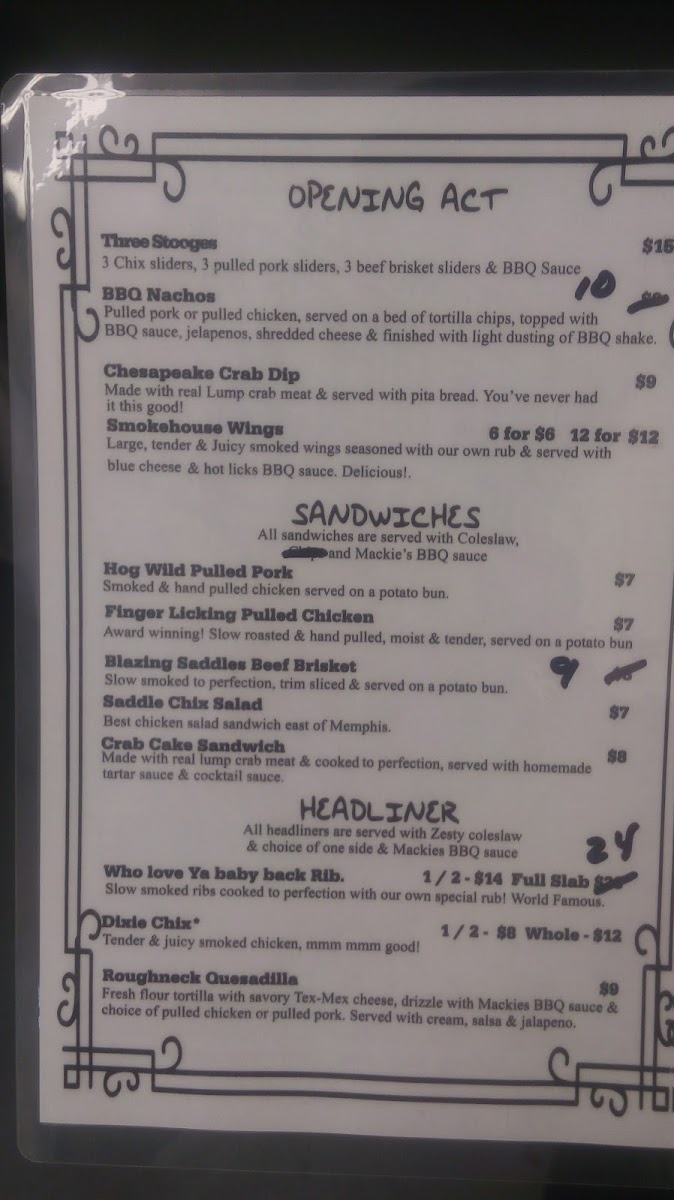 OPENING ACT
Three Stooges $15
3 Chix sliders, 3 pulled pork sliders, 3 beef brisket sliders & BBQ Sauce
BBQ Nachos 10
Pulled pork or pulled chicken, served on a bed of tortilla chips, topped with
BBQ sauce, jelapenos, shredded cheese & finished with light dusting of BBQ shake.
Chesapeake Crab Dip $9
Made with real Lump crab meat & served with pita bread. You've never had
it this good!
Smokehouse Wings 6 for $6 12 for $12
Large, tender & Juicy smoked wings seasoned with our own rub & served with
blue cheese & hot licks BBQ sauce. Delicious!.
SANDWICHES
All sandwiches are served with Coleslaw,
and Mackie's BBQ sauce
Hog Wild Pulled Pork $7
Smoked & hand pulled chicken served on a potato bun.
Finger Licking Pulled Chicken $7
Award winning! Slow roasted & hand pulled, moist & tender, served on a potato bun
Blazing Saddles Beef Brisket 9
Slow smoked to perfection, trim sliced & served on a potato bun.
Saddle Chix Salad $7
Best chicken salad sandwich east of Memphis.
Crab Cake Sandwich $8
Made with real lump crab meat & cooked to perfection, served with homemade
tartar sauce & cocktail sauce.
HEADLINER
All headliners are served with Zesty coleslaw
& choice of one side & Mackies BBQ sauce
24
Who love Ya baby back Rib. 1/2 - $14 Full Slab
Slow smoked ribs cooked to perfection with our own special rub! World Famous.
Dixie Chix* 1/2 - $8 Whole - $12
Tender & juicy smoked chicken, mmm mmm good!
Roughneck Quesadilla $9
Fresh flour tortilla with savory Tex-Mex cheese, drizzle with Mackies BBQ sauce &
choice of pulled chicken or pulled pork. Served with cream, salsa & jalapeno.